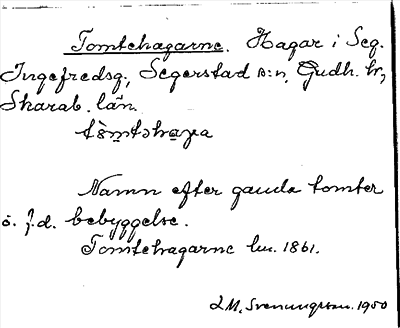 Tomtehagarne. Hagar i Seg.
Ingefredsg., Segerstad s:n, Gudh. hr,
Skarab. län.
Namn efter gamla tomter
o. f.d. bebyggelse.
Tomtehagarne lm. 1861.
L.M. Svenungsson. 1950